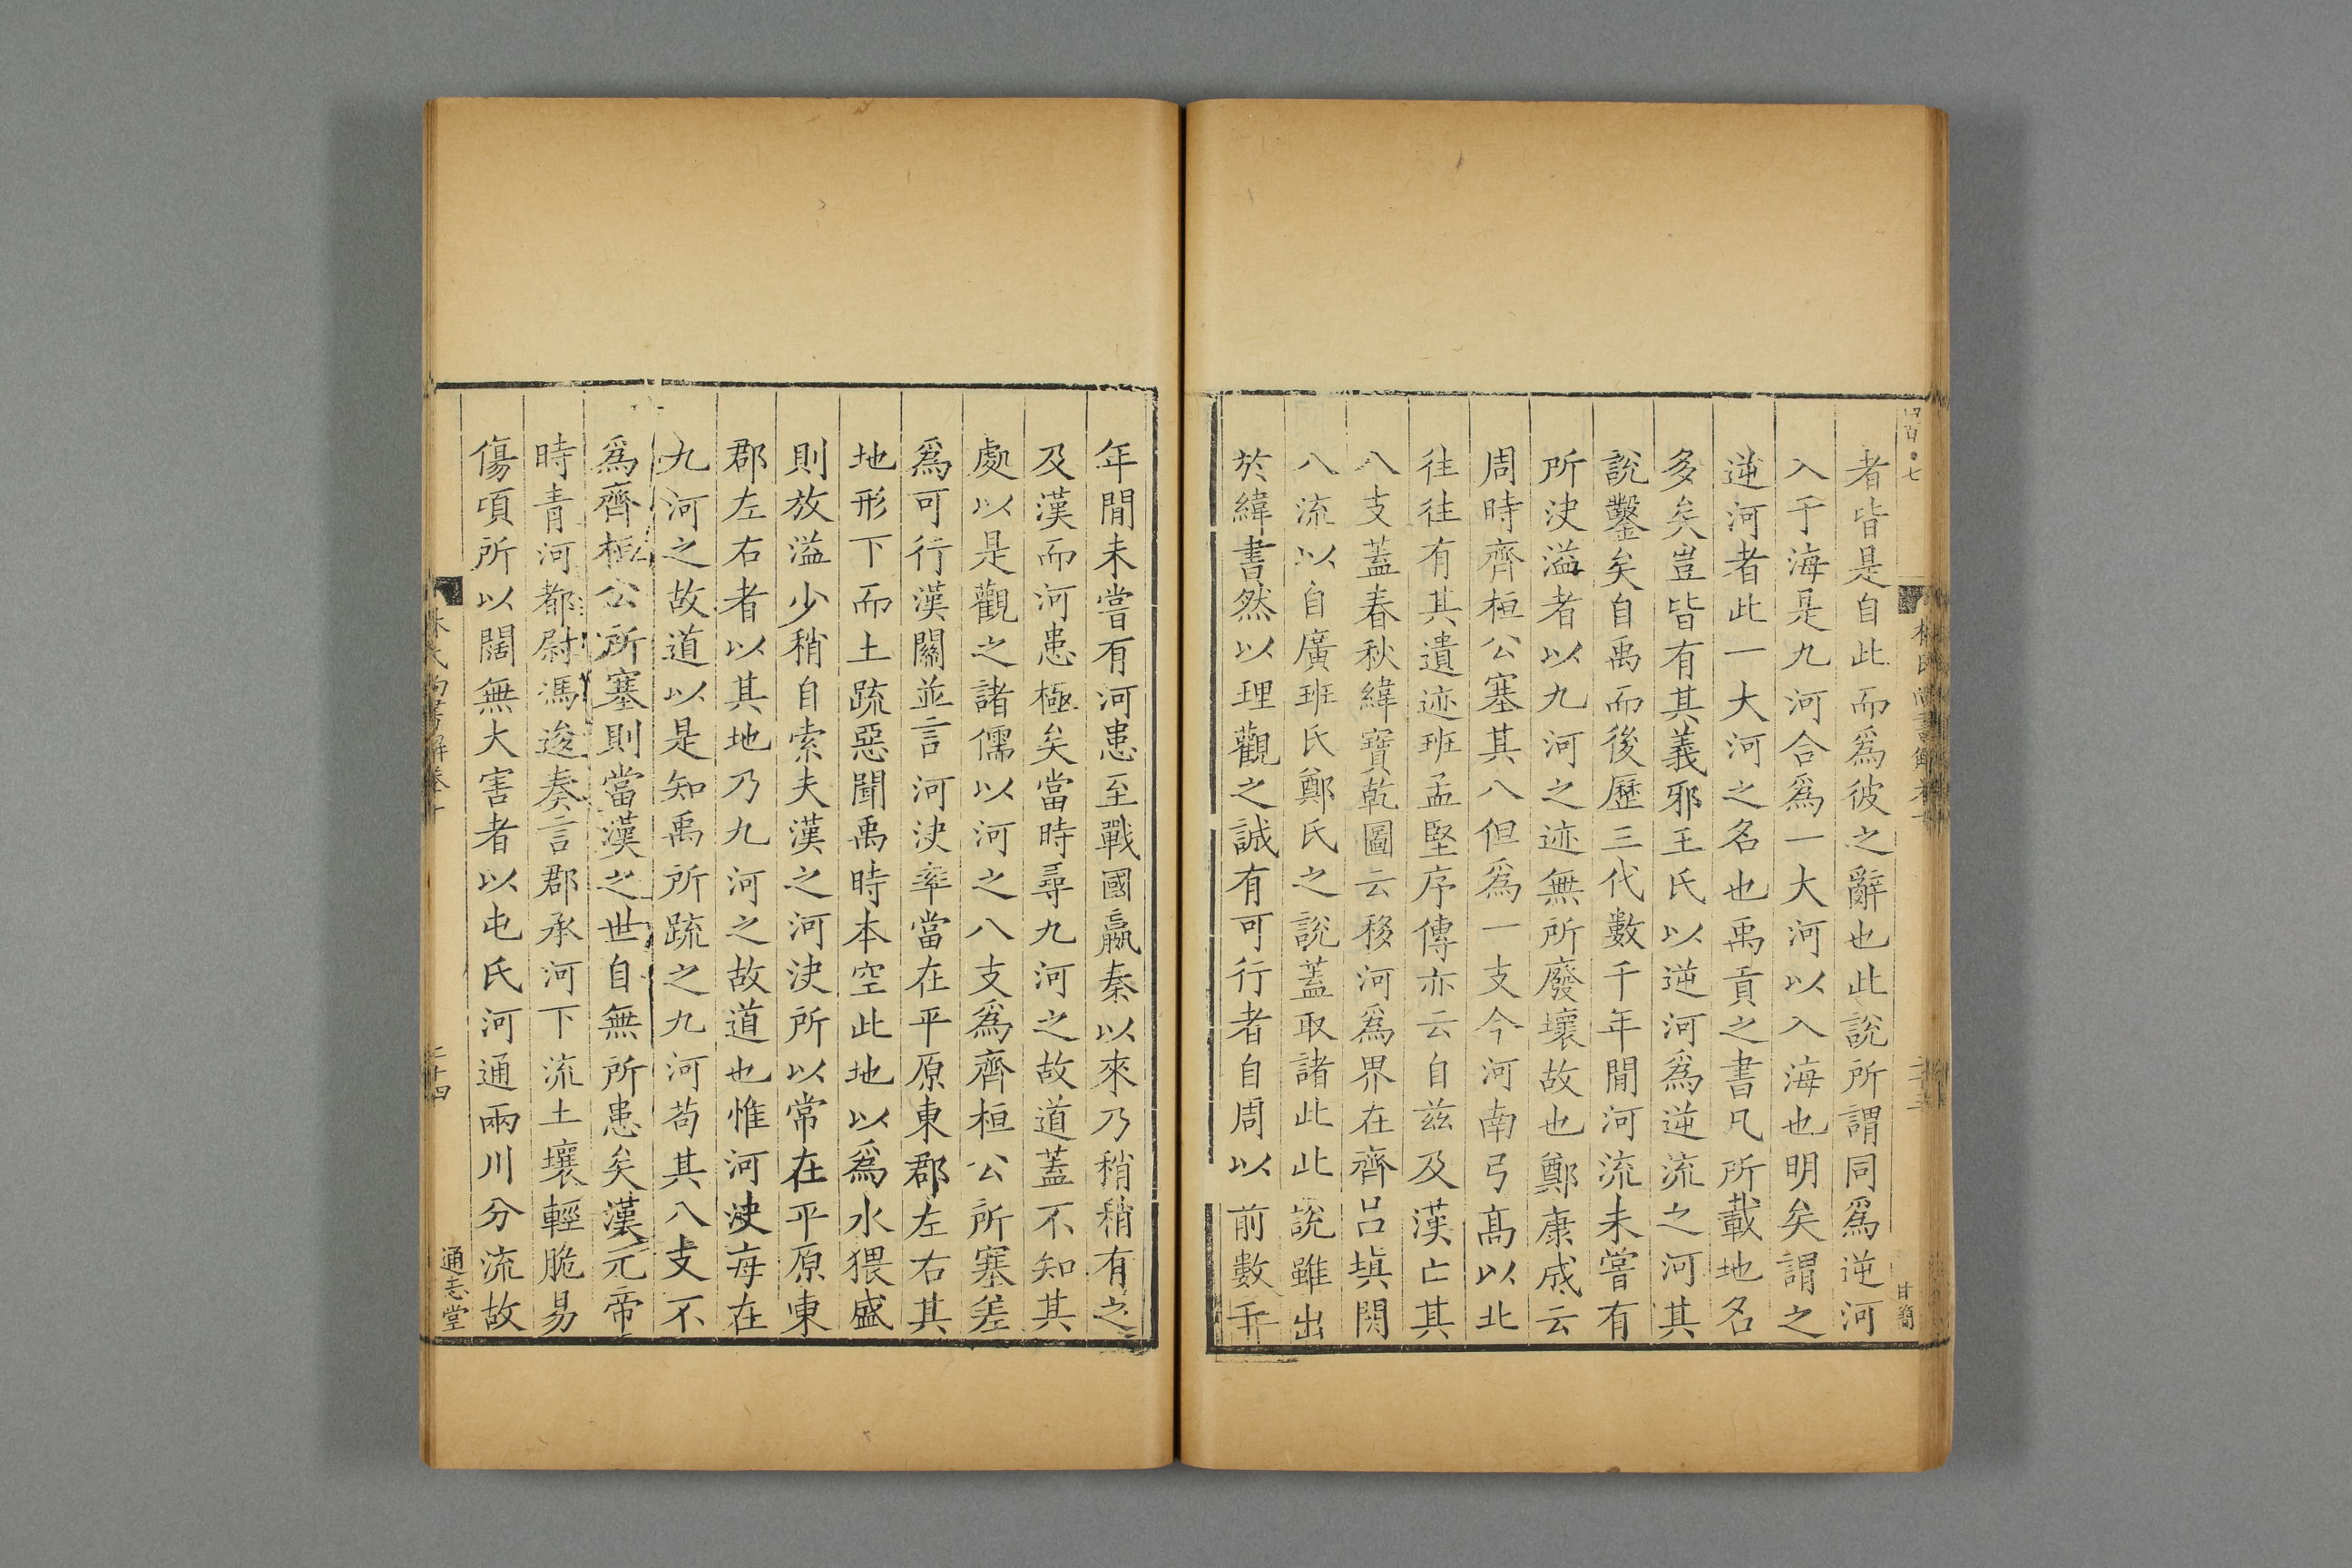 四百○七
林氏尚書解卷十
二十三
甘簡
者皆是自此而爲彼之辭也此說所謂同爲逆河
入于海是九河合爲一大河以入海也明矣謂之
逆河者此一大河之名也禹貢之書凡所載地名
多矣豈皆有其義邪王氏以逆河爲逆流之河其
說鑿矣自禹而後歷三代數千年閒河流未嘗有
所決溢者以九河之迹無所廢壞故也鄭康成云
周時齊桓公塞其八但爲一支今河南弓高以北
往往有其遺迹班孟堅序傳亦云自兹及漢亡其
八支蓋春秋緯寶乾圖云移河爲界在齊呂塡閼
八流以自廣班氏鄭氏之說蓋取諸此此說雖出
於緯書然以理觀之誠有可行者自周以前數千
年閒未嘗有河患至戰國嬴秦以來乃稍稍有之
及漢而河患極矣當時尋九河之故道蓋不知其
處以是觀之諸儒以河之八支爲齊桓公所塞差
爲可行漢關並言河決率當在平原東郡左右其
地形下而土疏惡聞禹時本空此地以爲水猥盛
則放溢少稍自索夫漢之河決所以常在平原東
郡左右者以其地乃九河之故道也惟河決每在
九河之故道以是知禹所疏之九河苟其八支不
爲齊桓公所塞則當漢之世自無所患矣漢元帝
時青河都尉馮逡奏言郡承河下流土壤輕脆易
傷頃所以闊無大害者以屯氏河通兩川分流故
林氏尚書解卷十
二十四
通志堂